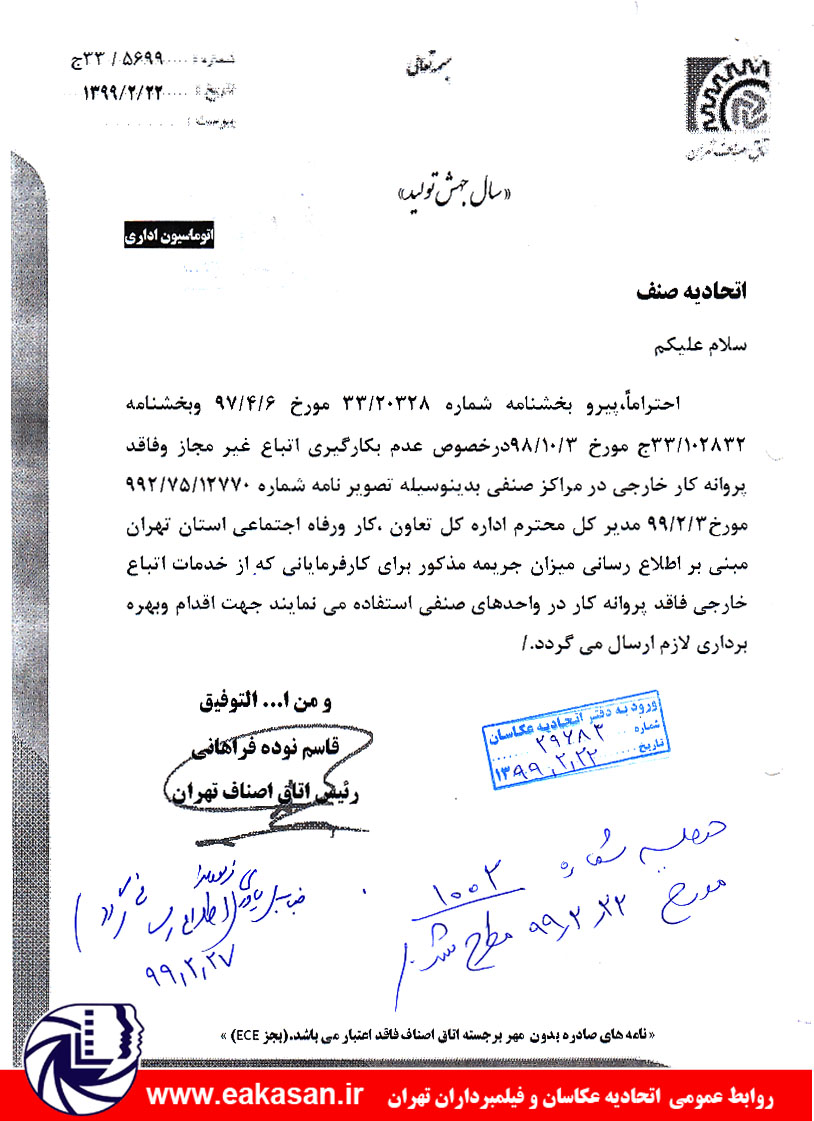 بسمه تعالی
شماره: ۵۶۹۹ / ۳۳ج
تاریخ: ۱۳۹۹/۲/۲۲
پیوست:
اتاق اصناف تهران
«سال جهش تولید»
اتوماسیون اداری
اتحادیه صنف
سلام علیکم
احتراماً،پیرو بخشنامه شماره ۳۳/۲۰۳۲۸ مورخ ۹۷/۴/۶ وبخشنامه
۳۳/۱۰۲۸۳۲ج مورخ ۹۸/۱۰/۳درخصوص عدم بکارگیری اتباع غیر مجاز وفاقد
پروانه کار خارجی در مراکز صنفی بدینوسیله تصویر نامه شماره ۹۹۲/۷۵/۱۲۷۷۰
مورخ۹۹/۲/۳ مدیر کل محترم اداره کل تعاون ،کار ورفاه اجتماعی استان تهران
مبنی بر اطلاع رسانی میزان جریمه مذکور برای کارفرمایانی که از خدمات اتباع
خارجی فاقد پروانه کار در واحدهای صنفی استفاده می نمایند جهت اقدام وبهره
برداری لازم ارسال می گردد./
و من ا... التوفیق
قاسم نوده فراهانی
رئیس اتاق اصناف تهران
ورود به دفتر اتحادیه عکاسان
شماره ۲۹۶۸۳
تاریخ ۱۳۹۹,۲,۲۲
جلسه شماره ۱۰۰۲
مورخ ۹۹,۲,۲۲ مطرح شد./
اطلاع رسانی گردد
۹۹,۲,۲۷
« نامه های صادره بدون مهر برجسته اتاق اصناف فاقد اعتبار می باشد.(بجز ECE) »
روابط عمومی اتحادیه عکاسان و فیلمبرداران تهران www.eakasan.ir